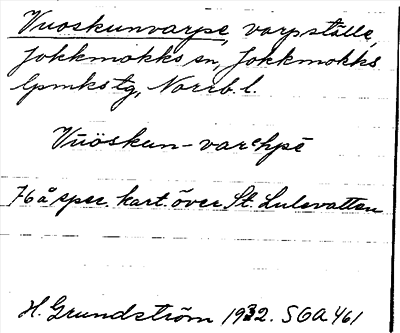 Vuoskunvarpe, varpställe,
Jokkmokks sn, Jokkmokks
lpmkstg, Norrb. l.
Vūöskun-varᵉhpē
76 å spec. kart. över St. Lulevatten
H. Grundström 1932. SOA 461